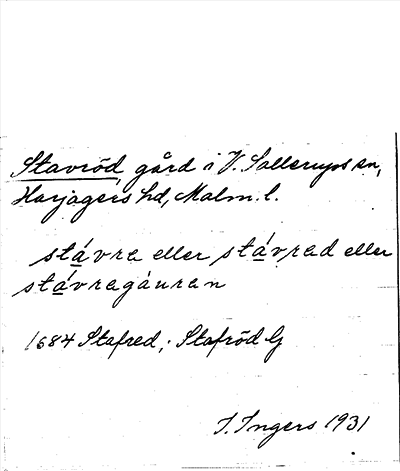 Stavröd, gård i V. Sallerups sn,
Harjagers hd, Malm. l.
stávra eller stávrad eller
stávragáuran
1684 Stafred; Stafröd G
I. Ingers 1931